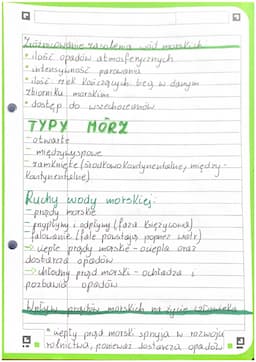 Zróżnicowanie zasolenia wód morskich
• ilość opadów atmosferycznych
• intensywność parowania
• ilość rzek kończących bieg w danym
zbiorniku morskim
• dostęp do wszechoceanów
TYPY MÓRZ
- otwarte
- międzywyspowe
- zamknięte (środkowokontynentalne, między-
kontynentalne)
Ruchy wody morskiej:
- prądy morskie
- przypływy i odpływy (faza księżycowa)
- falowanie (fale powstają poprzez wiatr)
→ ciepłe prądy morskie - ociepla oraz
dostarcza opadów
→ chłodny prąd morski - ochładza i
pozbawia opadów
Wpływ prądów morskich na życie człowieka
• ciepły prąd morski sprzyja w rozwoju
rolnictwa, ponieważ dostarcza opadów